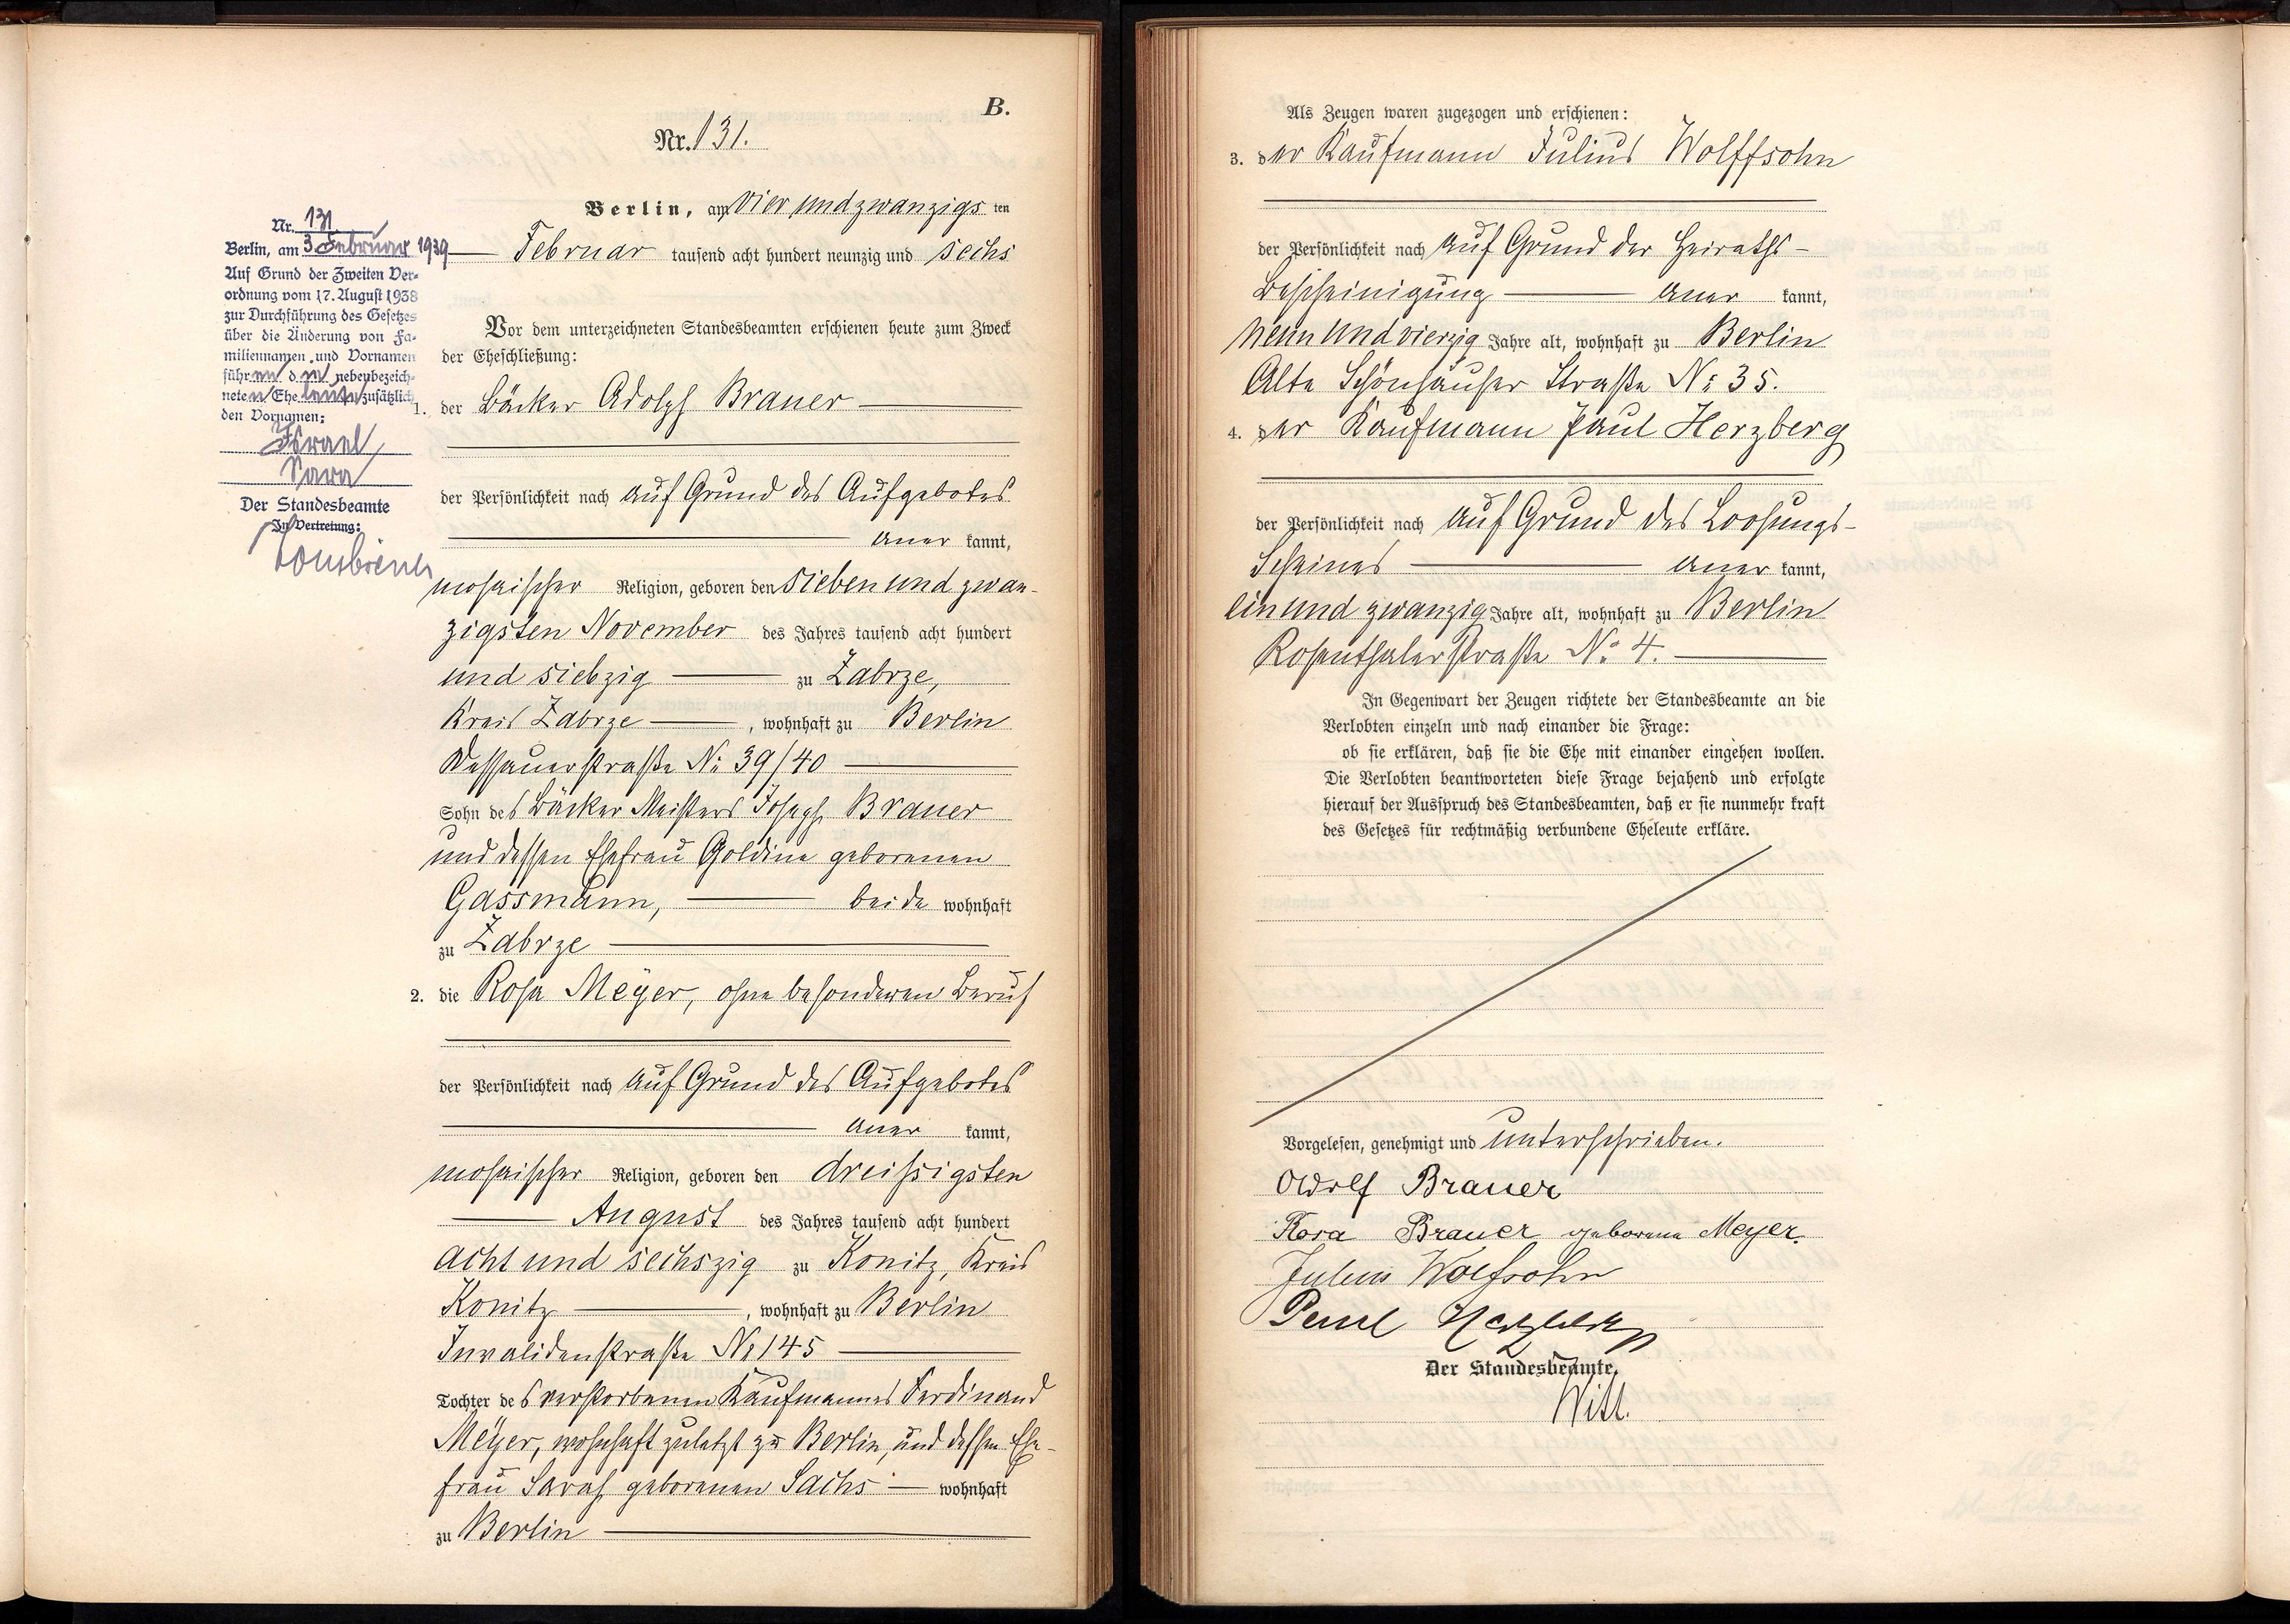 B.
Nr. 131.
Berlin, am vier und zwanzigs ten
Februar tausend acht hundert neunzig und sechs
Vor dem unterzeichneten Standesbeamten erschienen heute zum Zweck
der Eheschließung:
1. der Bäcker Adolph Brauer
der Persönlichkeit nach auf Grund des Aufgebotes
aner kannt,
mosaischer Religion, geboren den sieben und zwan-
zigsten November des Jahres tausend acht hundert
und siebzig zu Zabrze,
Kreis Zabrze, wohnhaft zu Berlin
Dessauerstraße No 39/40
Sohn des Bäcker Meisters Joseph Brauer
und dessen Ehefrau Goldine geborenen
Gassmann, beide wohnhaft
zu Zabrze
2. die Rosa Meyer, ohne besonderen Beruf
der Persönlichkeit nach auf Grund des Aufgebotes
aner kannt,
mosaischer Religion, geboren den dreißigsten
August des Jahres tausend acht hundert
acht und sechszig zu Konitz, Kreis
Konitz, wohnhaft zu Berlin
Invalidenstraße No 145
Tochter des verstorbenen Kaufmannes Ferdinand
Meyer, wohnhaft zuletzt zu Berlin, und dessen Ehe-
frau Sarah geborenen Sachs wohnhaft
zu Berlin
Nr. 131
Berlin, am 3 Februar 1939
Auf Grund der Zweiten Ver-
ordnung vom 17. August 1938
zur Durchführung des Gesetzes
über die Änderung von Fa-
miliennamen und Vornamen
führen den nebenbezeich-
neten Eheleute zusätzlich
den Vornamen:
Israel
Sara
Der Standesbeamte
In Vertretung:
Als Zeugen waren zugezogen und erschienen:
3. der Kaufmann Julius Wolffsohn
der Persönlichkeit nach auf Grund der Heiraths-
Bescheinigung aner kannt,
neun und vierzig Jahre alt, wohnhaft zu Berlin
Alte Schönhauser Straße No 35.
4. der Kaufmann Paul Herzberg
der Persönlichkeit nach auf Grund des Loosungs-
Scheines aner kannt,
ein und zwanzig Jahre alt, wohnhaft zu Berlin
Rosenthalerstraße No 4.
In Gegenwart der Zeugen richtete der Standesbeamte an die
Verlobten einzeln und nach einander die Frage:
ob sie erklären, daß sie die Ehe mit einander eingehen wollen.
Die Verlobten beantworteten diese Frage bejahend und erfolgte
hierauf der Ausspruch des Standesbeamten, daß er sie nunmehr kraft
des Gesetzes für rechtmäßig verbundene Eheleute erkläre.
Vorgelesen, genehmigt und unterschrieben.
Adolf Brauer
Rosa Brauer geborene Meyer.
Julius Wolfsohn
Paul Herzberg
Der Standesbeamte.
Witt.